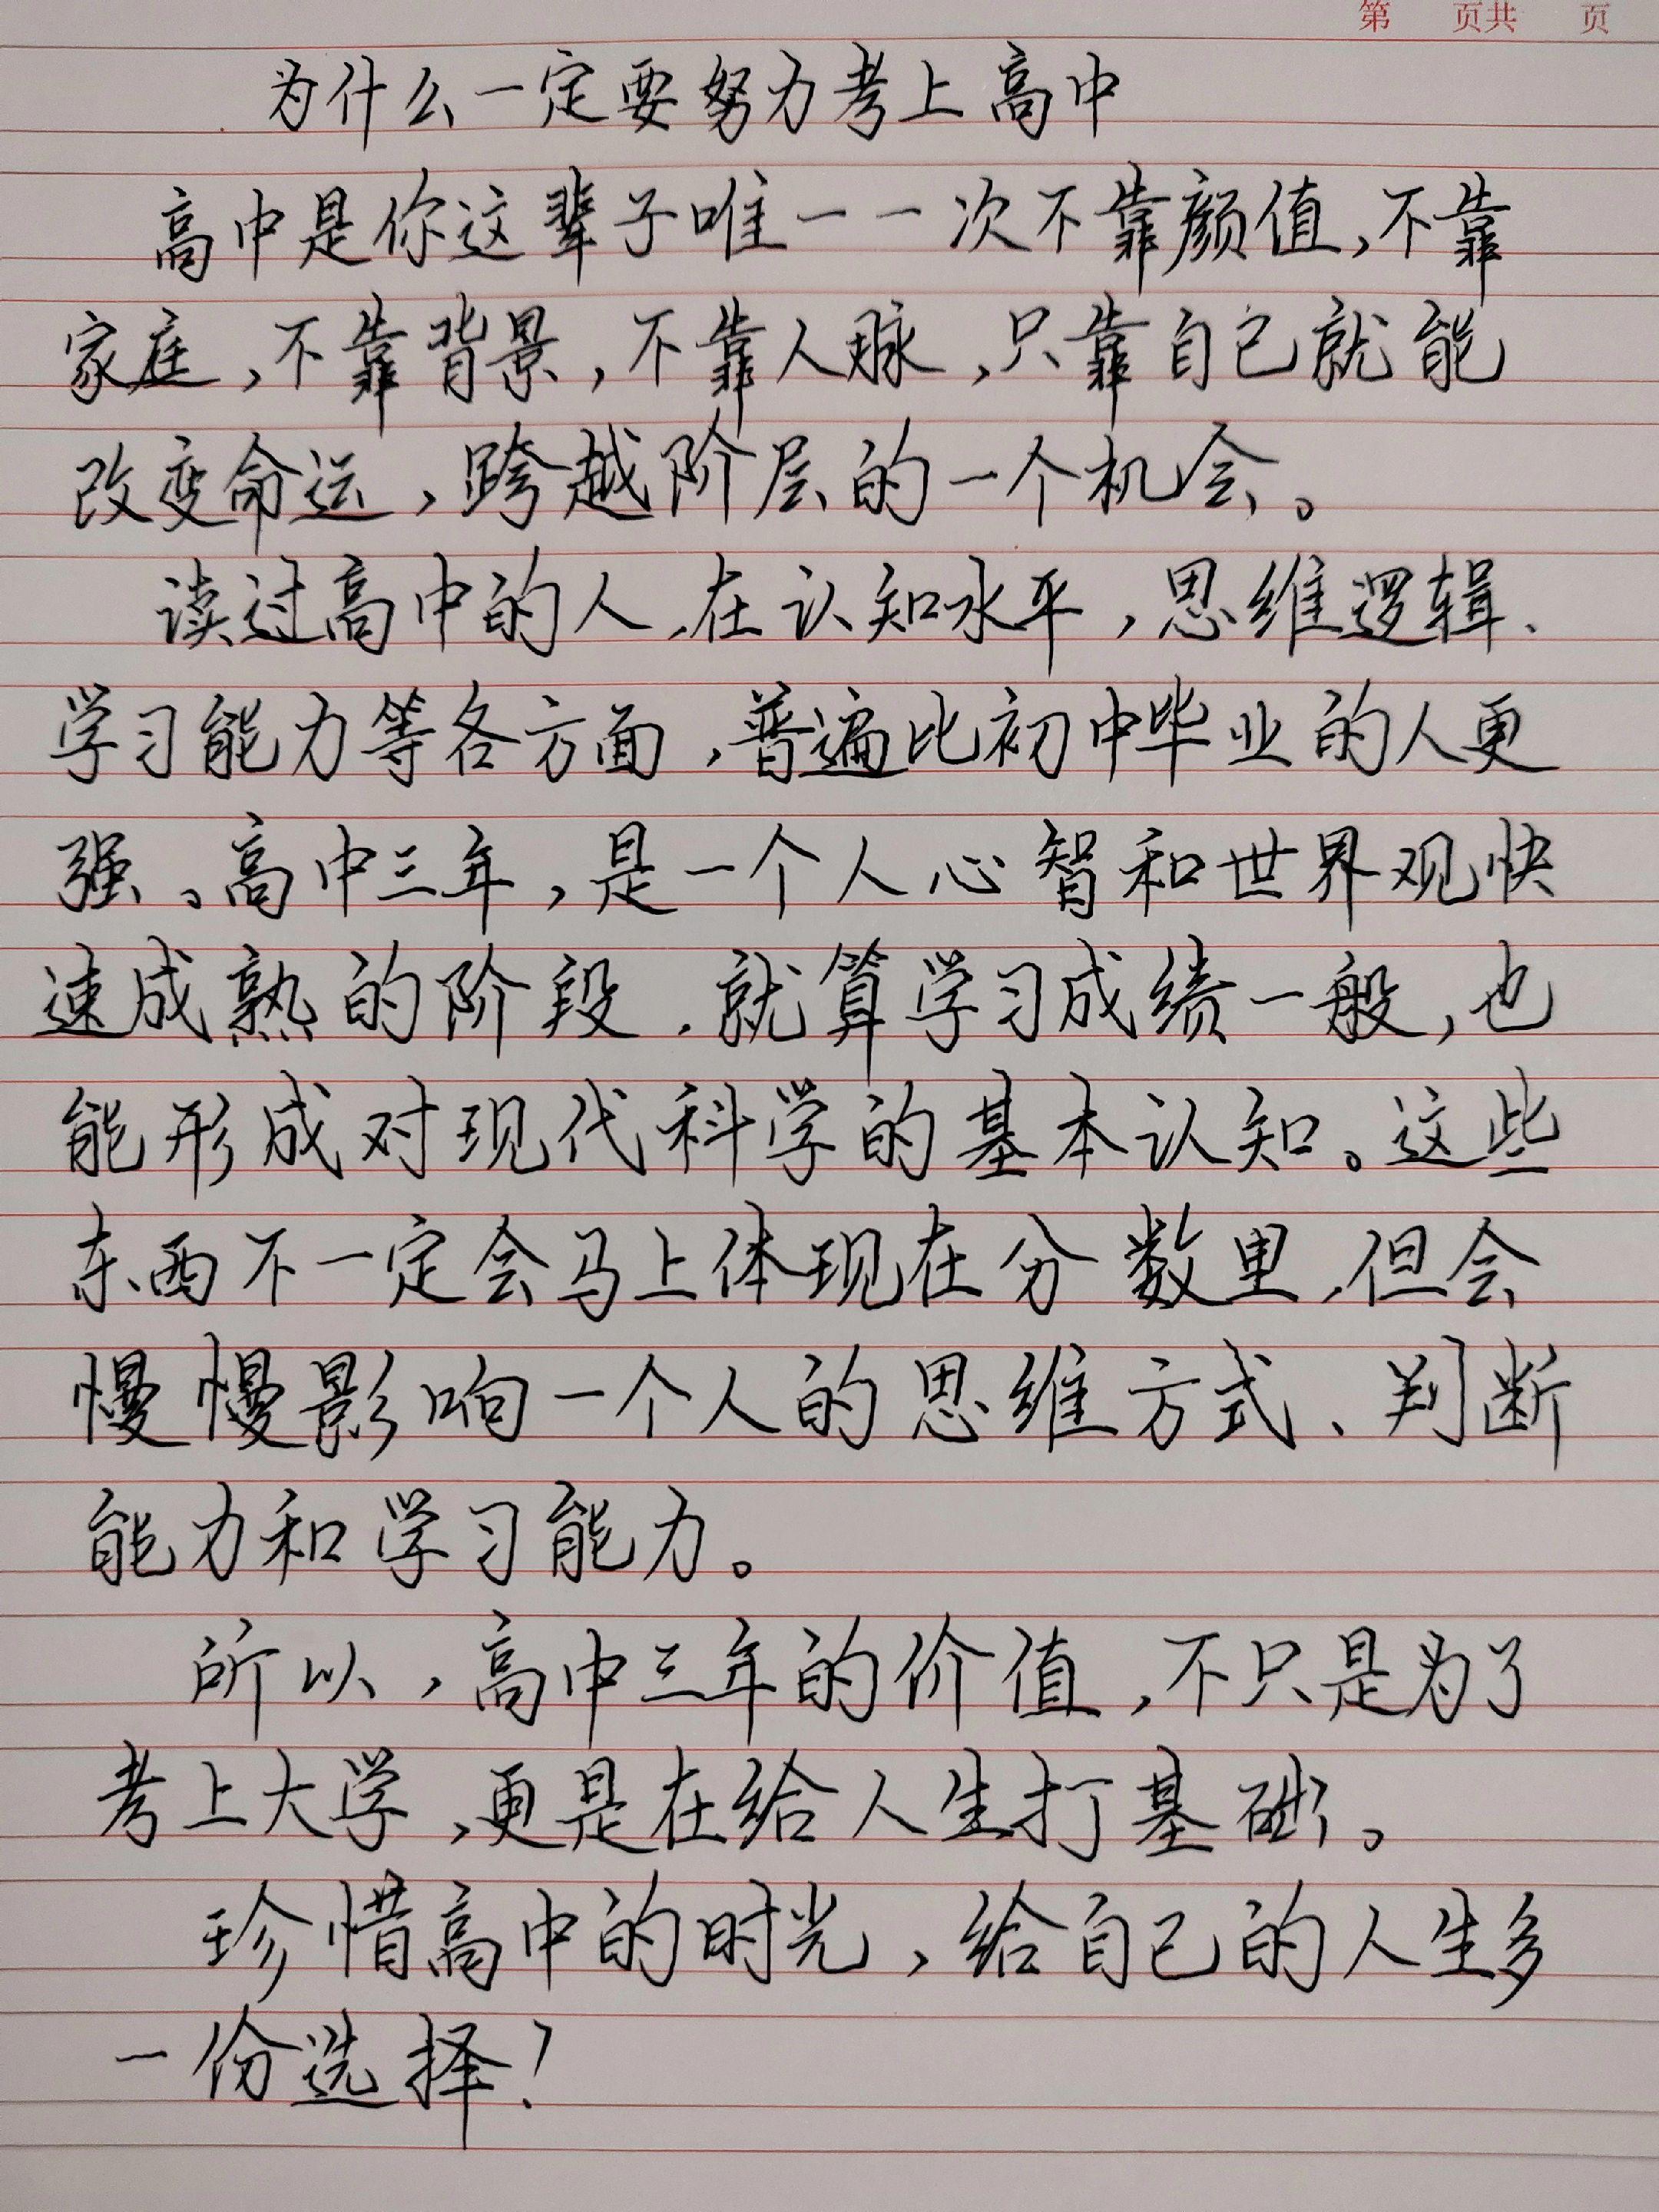 第 页共 页
为什么一定要努力考上高中
高中是你这辈子唯一一次不靠颜值,不靠
家庭,不靠背景,不靠人脉,只靠自己就能
改变命运,跨越阶层的一个机会。
读过高中的人,在认知水平,思维逻辑、
学习能力等各方面,普遍比初中毕业的人更
强。高中三年,是一个人心智和世界观快
速成熟的阶段,就算学习成绩一般,也
能形成对现代科学的基本认知。这些
东西不一定会马上体现在分数里,但会
慢慢影响一个人的思维方式、判断
能力和学习能力。
所以,高中三年的价值,不只是为了
考上大学,更是在给人生打基础。
珍惜高中的时光,给自己的人生多
一份选择!